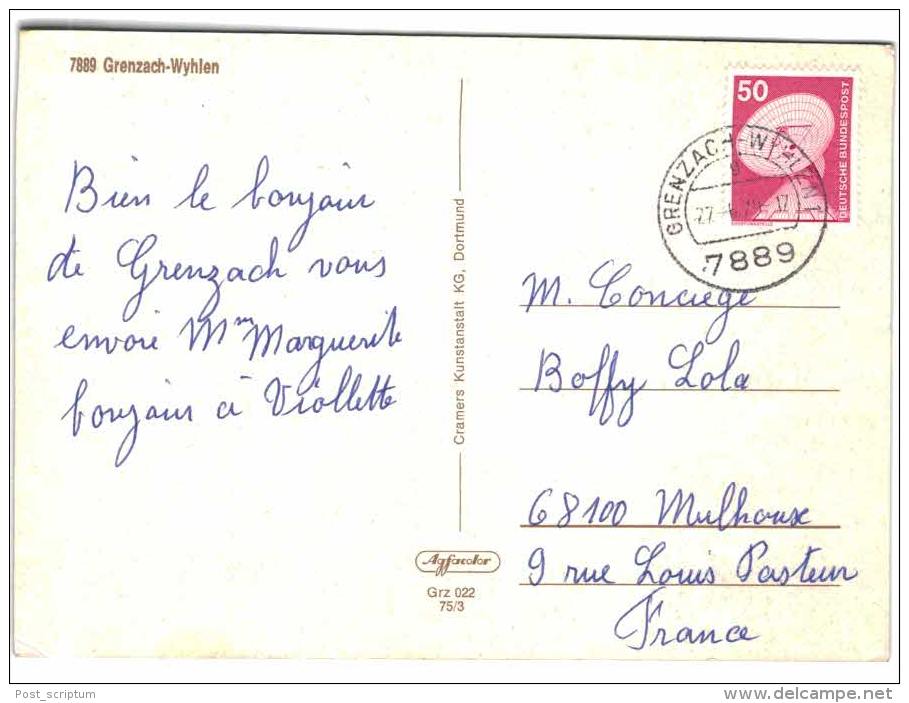 7889 Grenzach-Wyhlen
Bien le bonjour
de Grenzach vous
envoie Mme Marguerite
bonjour à Viollette
Cramers Kunstanstalt KG, Dortmund
Agfacolor
Grz 022
75/3
50
DEUTSCHE BUNDESPOST
GRENZACH-WYHLEN 1
7889
M. Conciege
Boffy Lola
68100 Mulhouse
9 rue Louis Pasteur
France
Post_scriptum
www.delcampe.net